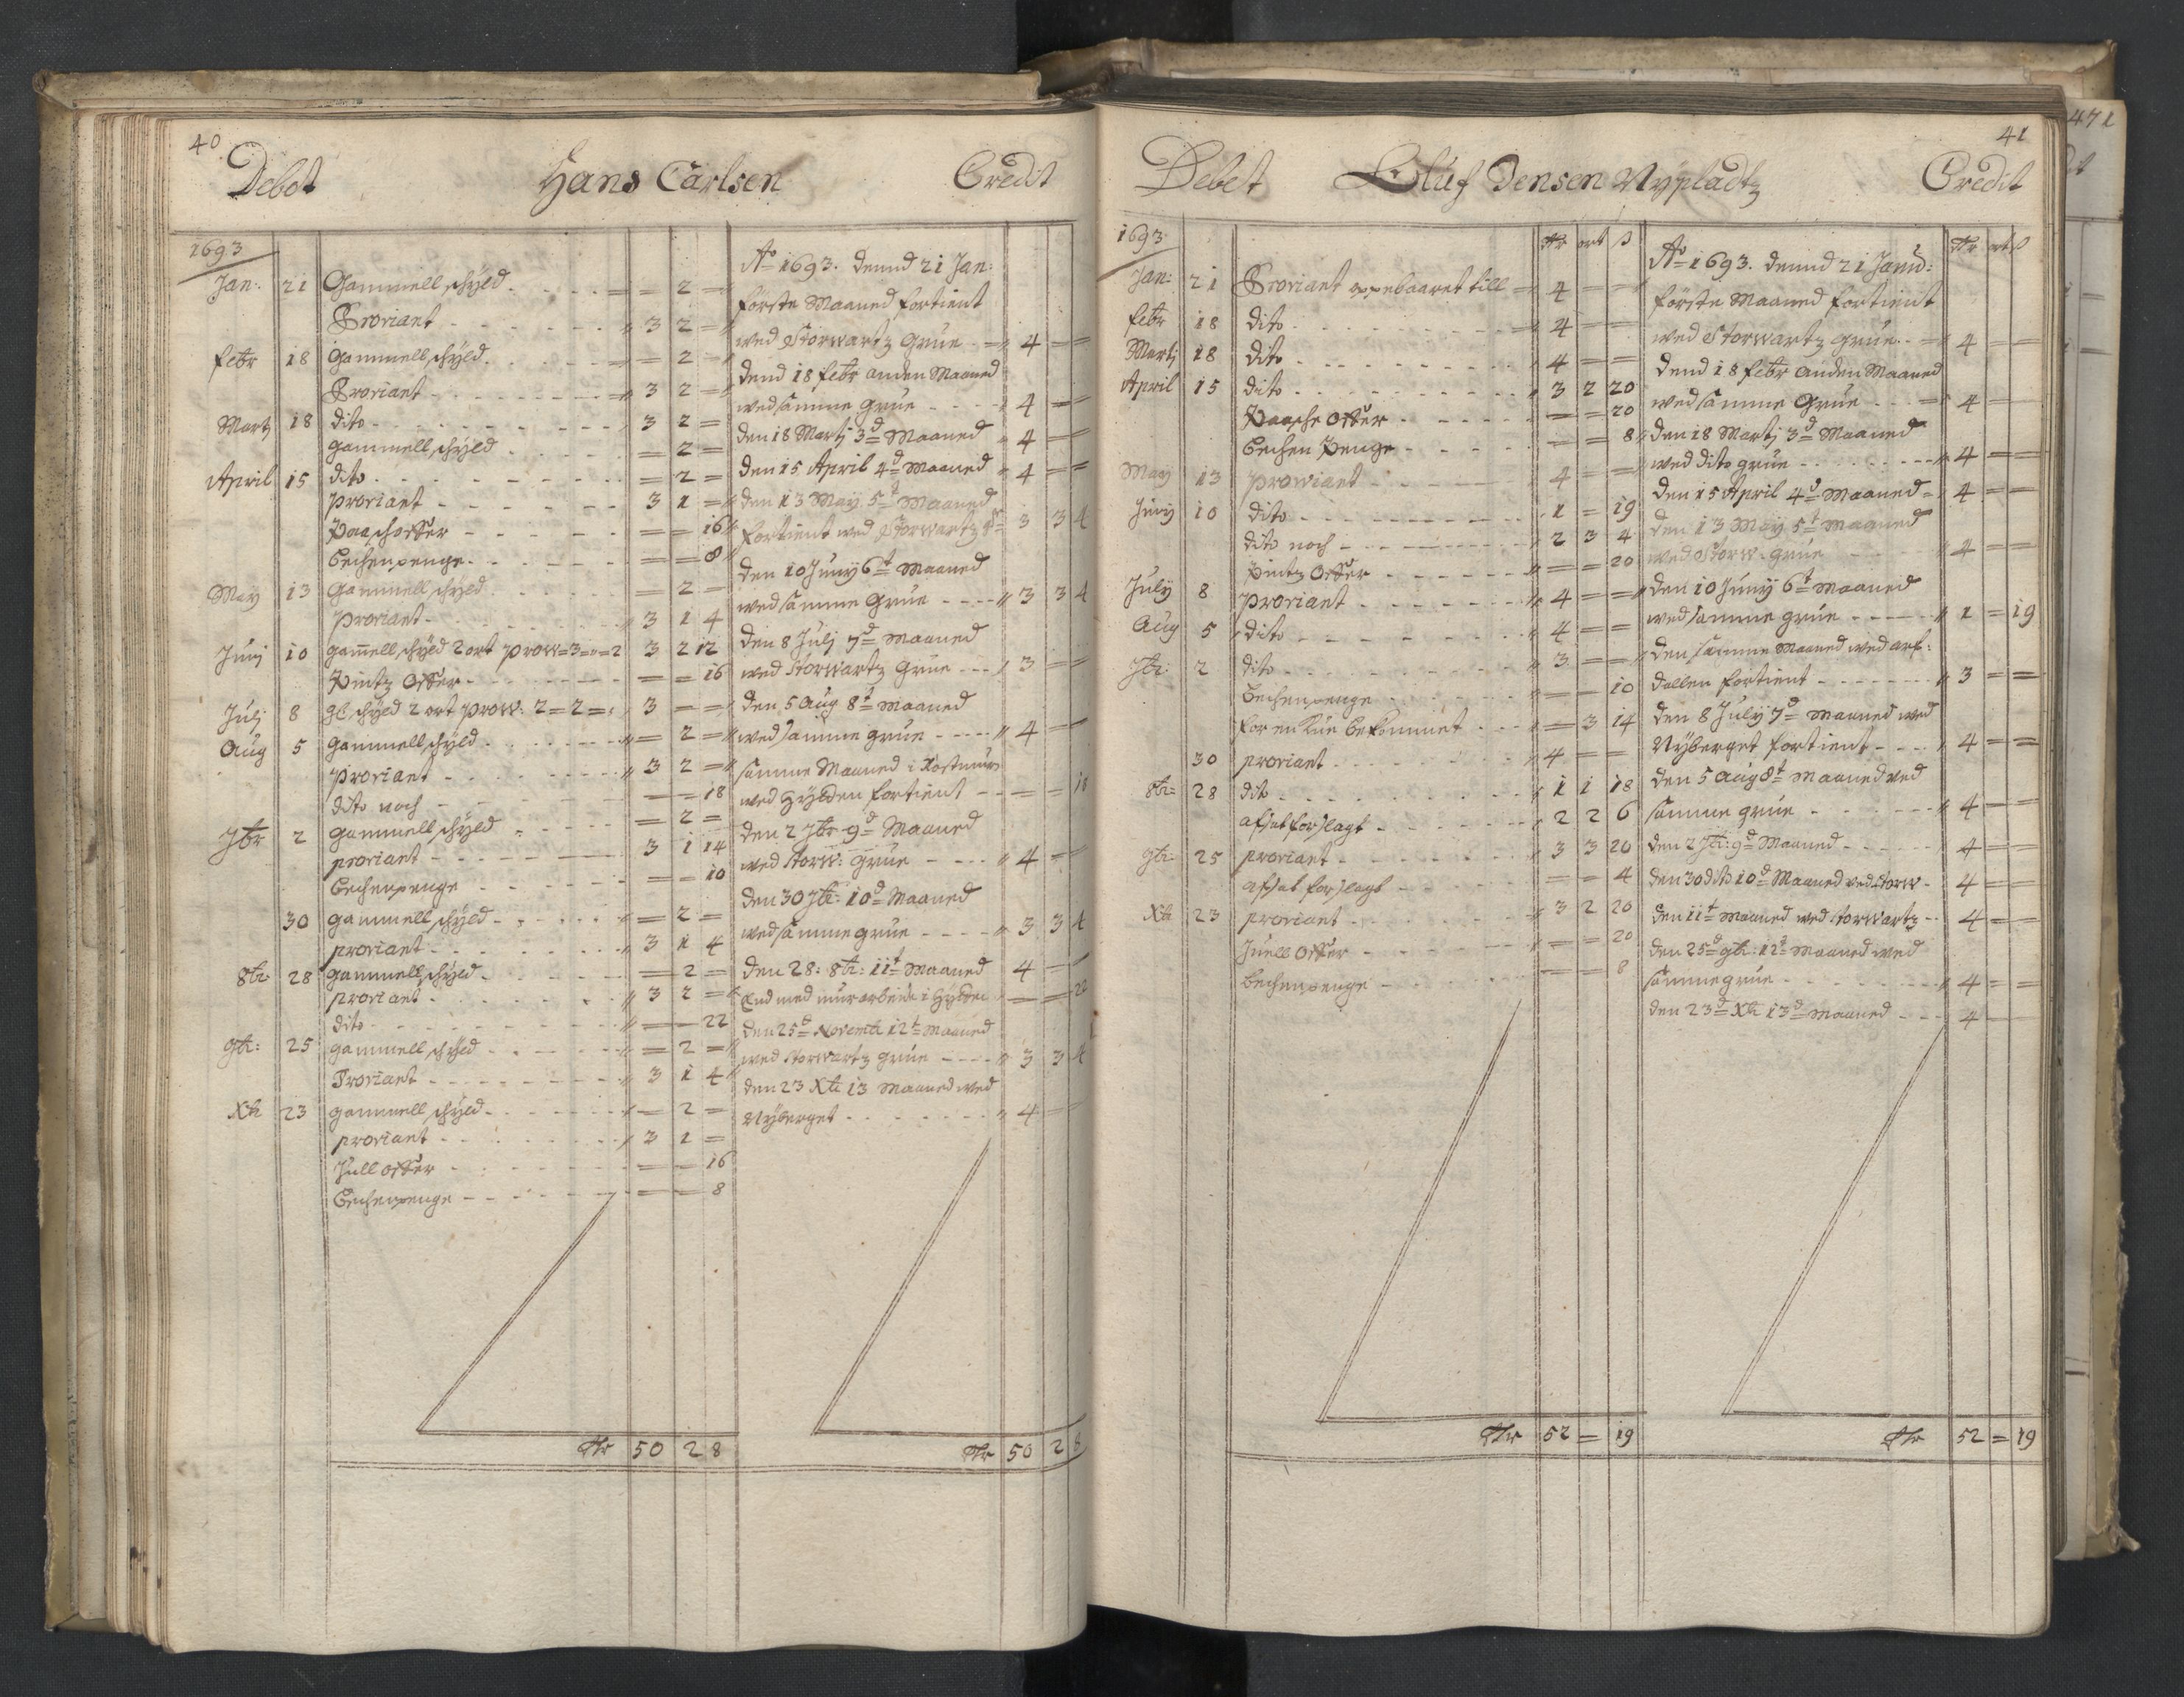 40
Debet Hans Carlsen Credit
1693
Jan: 21 Gammell schyld - - = 2 =
Proviant - - 3 2 =
Febr 18 gammell schyld - - = 2 =
Proviant - - 3 2 =
Martj 18 dito - - 3 2 =
gammell schyld - - = 2 =
April 15 dito - - = 2 =
proviant - - 3 1 =
Paaschoffer - - = = 16
Bechenpenge - - = = 8
May 13 Gammell schyld - - = 2 =
proviant - - 3 1 4
Junj 10 gam̄ell schyld 2 ort prow=3=„=2 3 2 12
Pintz Offer - - = = 16
Julj 8 gl. schyld 2 ort prow: 2=2=: 3 = =
Aug 5 gammell schyld - - = 2 =
proviant - - 3 2 =
dito noch - - = = 18
7br 2 gammell schyld - - = 2 =
proviant - - 3 1 14
Bechenpenge - - = = 10
30 gammell schyld - - = 2 =
proviant - - 3 1 4
8br 28 gammell schyld - - = 2 =
proviant - - 3 2 =
dito - - = = 22
9br: 25 gammell schyld - - = 2 =
Proviant - - 3 1 4
Xbr 23 gammell schyld - - = 2 =
proviant - - 3 1 =
Jull offer - - = = 16
Bechenpenge - - = = 8
Rdr 50 2 8
Ao 1693. Dennd 21 Jan:
förste Maaned fortient
wed Storwartz Grue - - 4 = =
Dend 18 Febr anden Maaned
wed samme grue - - 4 = =
Den 18 Martj 3d Maaned 4 = =
Den 15 April 4d Maaned 4 = =
Den 13 May 5t Maaned
fortient wed Storwartz gr 3 3 4
Den 10 Junij 6t Maaned
wed samme Grue - - 3 3 4
Den 8 Julj 7d Maaned
wed Storwartz Grue - - 3 = =
Den 5 Aug 8t Maaned
wed samme grue - - 4 = =
samme Maaned i Rostmurs
wed Hytten fortient - - = = 18
Den 2 7br 9d Maaned
wed Storw: grue - - 4 = =
Den 30 7br: 10d Maaned
wed samme grue - - 3 3 4
Den 28: 8br: 11t Maaned 4 = =
End med murarbeide i Hytten = = 22
Den 25d Novemb 12t Maaned
wed Storwartz grue - - 3 3 4
Den 23 Xbr 13 Maaned wed
Nyberget - - 4 = =
Rdr 50 2 8
41
Debet Oluf Jensen Nypladtz Credit
1693
Rdr ort ß
Jan: 21 Proviant oppebaaret till = 4 = =
Febr 18 dito - - 4 = =
Martj 18 dito - - 4 = =
April 15 dito - - 3 2 20
Paasche Offer - - = = 20
Bechen Penge - - = = 8
May 13 prowiant - - 4 = =
Junij 10 dito - - 1 = 19
dito noch - - 2 3 4
Pintz Offer - - = = 20
July 8 proviant - - 4 = =
Aug 5 dito - - 4 = =
7br: 2 dito - - 3 = =
Bechenpenge - - = = 10
for en Kue bekommet - - = 3 14
30 proviant - - 4 = =
8br= 28 dito - - 1 1 18
afsat forslagt - - 2 2 6
9br: 25 proviant - - 3 3 20
afsat forslagt - - = = 4
Xbr 23 proviant - - 3 2 20
Juell Offer - - = = 20
bechenpenge - - = = 8
Rdr 52 = 19
Rdr ort ß
Ao 1693. Dennd 21 Janu:
förste Maaned fortient
wed Storwartz grue - - 4 = =
Dend 18 Febr anden Maaned
wed samme Grue - - 4 = =
Den 18 Martj 3d Maaned
wed dito grue - - 4 = =
Den 15 April 4d Maaned = 4 = =
Den 13 May 5t Maaned
wed Storw. grue - - 4 = =
Den 10 Junij 6t Maaned
wed samme grue - - 1 = 19
Den samme Maaned wed arf:
dallen fortient - - 3 = =
Den 8 July 7d Maaned wed
Nyberget fortient - - 4 = =
Den 5 Aug 8t Maaned ved
samme grue - - 4 = =
Den 2 7br: 9d Maaned - - 4 = =
Den 30 dito 10d Maaned ved Storw - 4 = =
Den 11t Maaned wed Storwartz - - 4 = =
Den 25d 9br: 12t Maaned wed
samme grue - - 4 = =
Den 23d Xbr 13d Maaned - - 4 = =
Rdr 52 = 19
471